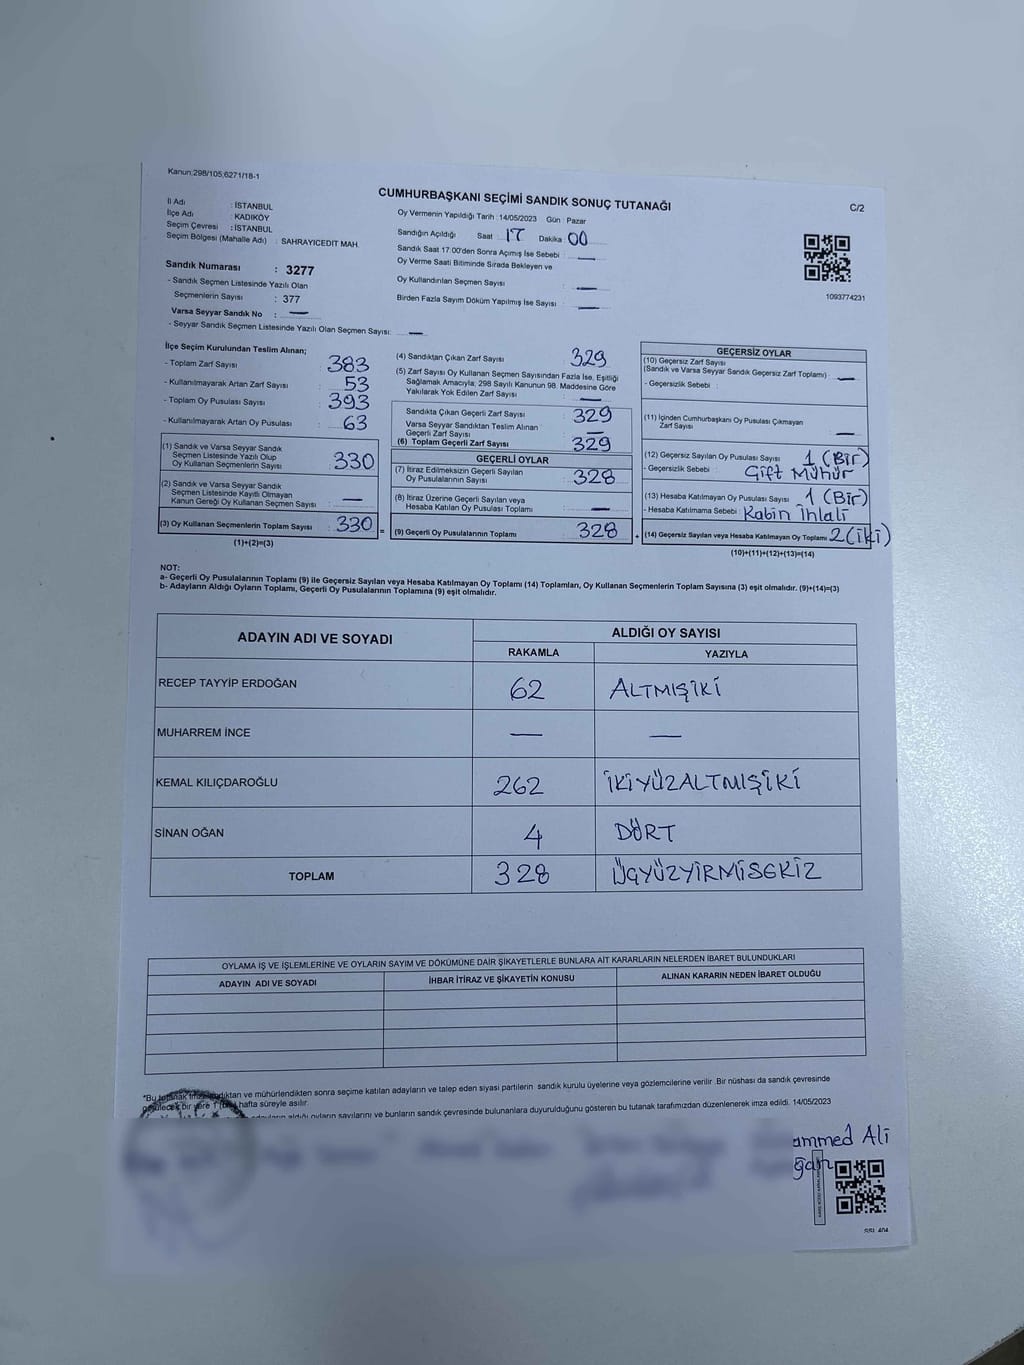 Kanun;298/105,6271/18-1
CUMHURBAŞKANI SEÇİMİ SANDIK SONUÇ TUTANAĞI
C/2
İl Adı : İSTANBUL
İlçe Adı : KADIKÖY
Seçim Çevresi : İSTANBUL
Seçim Bölgesi (Mahalle Adı) : SAHRAYICEDIT MAH.
Sandık Numarası : 3277
- Sandık Seçmen Listesinde Yazılı Olan
Seçmenlerin Sayısı : 377
Varsa Seyyar Sandık No : —
- Seyyar Sandık Seçmen Listesinde Yazılı Olan Seçmen Sayısı: —
Oy Vermenin Yapıldığı Tarih : 14/05/2023 Gün : Pazar
Sandığın Açıldığı Saat : 17 Dakika : 00
Sandık Saat 17:00'den Sonra Açımış İse Sebebi : —
Oy Verme Saati Bitiminde Sırada Bekleyen ve
Oy Kullandırılan Seçmen Sayısı : —
Birden Fazla Sayım Döküm Yapılmış İse Sayısı : —
1093774231
İlçe Seçim Kurulundan Teslim Alınan;
- Toplam Zarf Sayısı : 383
- Kullanılmayarak Artan Zarf Sayısı : 53
- Toplam Oy Pusulası Sayısı : 393
- Kullanılmayarak Artan Oy Pusulası : 63
(1) Sandık ve Varsa Seyyar Sandık
Seçmen Listesinde Yazılı Olup
Oy Kullanan Seçmenlerin Sayısı : 330
(2) Sandık ve Varsa Seyyar Sandık
Seçmen Listesinde Kayıtlı Olmayan
Kanun Gereği Oy Kullanan Seçmen Sayısı : —
(3) Oy Kullanan Seçmenlerin Toplam Sayısı : 330 =
(1)+(2)=(3)
(4) Sandıktan Çıkan Zarf Sayısı : 329
(5) Zarf Sayısı Oy Kullanan Seçmen Sayısından Fazla İse, Eşitliği
Sağlamak Amacıyla; 298 Sayılı Kanunun 98. Maddesine Göre
Yakılarak Yok Edilen Zarf Sayısı : —
Sandıkta Çıkan Geçerli Zarf Sayısı : 329
Varsa Seyyar Sandıktan Teslim Alınan
Geçerli Zarf Sayısı : —
(6) Toplam Geçerli Zarf Sayısı : 329
GEÇERLİ OYLAR
(7) İtiraz Edilmeksizin Geçerli Sayılan
Oy Pusulalarının Sayısı : 328
(8) İtiraz Üzerine Geçerli Sayılan veya
Hesaba Katılan Oy Pusulası Toplamı : —
(9) Geçerli Oy Pusulalarının Toplamı : 328 +
GEÇERSİZ OYLAR
(10) Geçersiz Zarf Sayısı
(Sandık ve Varsa Seyyar Sandık Geçersiz Zarf Toplamı) : —
- Geçersizlik Sebebi :
(11) İçinden Cumhurbaşkanı Oy Pusulası Çıkmayan
Zarf Sayısı : —
(12) Geçersiz Sayılan Oy Pusulası Sayısı : 1 (Bir)
- Geçersizlik Sebebi : Çift Mühür
(13) Hesaba Katılmayan Oy Pusulası Sayısı : 1 (Bir)
- Hesaba Katılmama Sebebi : Kabin İhlali
(14) Geçersiz Sayılan veya Hesaba Katılmayan Oy Toplamı : 2 (iki)
(10)+(11)+(12)+(13)=(14)
NOT:
a- Geçerli Oy Pusulalarının Toplamı (9) ile Geçersiz Sayılan veya Hesaba Katılmayan Oy Toplamı (14) Toplamları, Oy Kullanan Seçmenlerin Toplam Sayısına (3) eşit olmalıdır. (9)+(14)=(3)
b- Adayların Aldığı Oyların Toplamı, Geçerli Oy Pusulalarının Toplamına (9) eşit olmalıdır.
ADAYIN ADI VE SOYADI ALDIĞI OY SAYISI
RAKAMLA YAZIYLA
RECEP TAYYİP ERDOĞAN 62 ALTMIŞİKİ
MUHARREM İNCE — —
KEMAL KILIÇDAROĞLU 262 İKİYÜZALTMIŞİKİ
SİNAN OĞAN 4 DÖRT
TOPLAM 328 ÜÇYÜZYİRMİSEKİZ
OYLAMA İŞ VE İŞLEMLERİNE VE OYLARIN SAYIM VE DÖKÜMÜNE DAİR ŞİKAYETLERLE BUNLARA AİT KARARLARIN NELERDEN İBARET BULUNDUKLARI
ADAYIN ADI VE SOYADI İHBAR İTİRAZ VE ŞİKAYETİN KONUSU ALINAN KARARIN NEDEN İBARET OLDUĞU
*Bu tutanak imzalandıktan ve mühürlendikten sonra seçime katılan adayların ve talep eden siyasi partilerin sandık kurulu üyelerine veya gözlemcilerine verilir .Bir nüshası da sandık çevresinde
görülecek bir yere 1 (bir) hafta süreyle asılır.
aldığı oyların sayılarını ve bunların sandık çevresinde bulunanlara duyurulduğunu gösteren bu tutanak tarafımızdan düzenlenerek imza edildi. 14/05/2023
ammed Ali
ğan